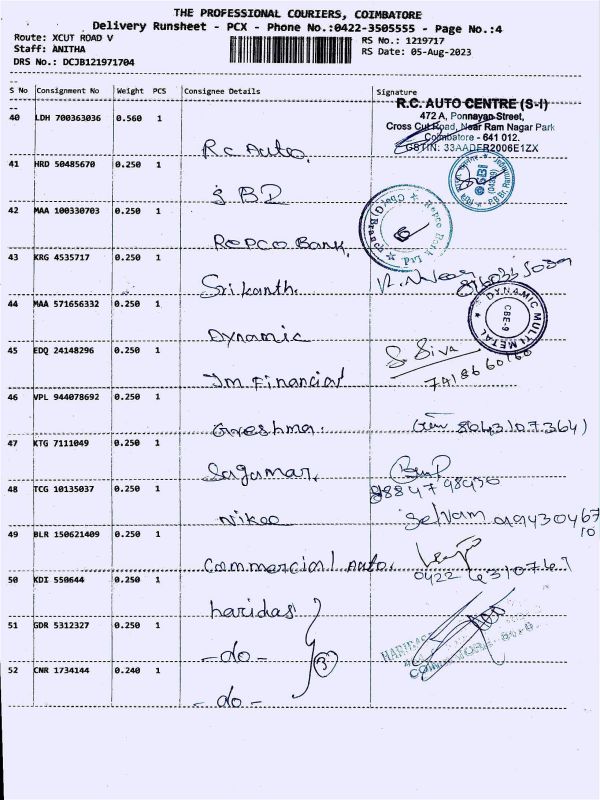 THE PROFESSIONAL COURIERS, COIMBATORE
Delivery Runsheet - PCX - Phone No.:0422-3505555 - Page No.:4
Route: XCUT ROAD V RS No.: 1219717
Staff: ANITHA RS Date: 05-Aug-2023
DRS No.: DCJB121971704
S No Consignment No Weight PCS Consignee Details Signature
R.C. AUTO CENTRE (S-I)
40 LDH 700363036 0.560 1 472 A, Ponnayan Street,
Cross Cut Road, Near Ram Nagar Park
Coimbatore - 641 012.
Rc Auto. GSTIN: 33AADFR2006E1ZX
41 HRD 50485670 0.250 1
SBI
42 MAA 100330703 0.250 1
Repco Bank.
43 KRG 4535717 0.250 1
Srikanth.
44 MAA 571656332 0.250 1 DYNAMIC MULTI METAL CBE-9
Dynamic
45 EDQ 24148296 0.250 1 S. Siva
Jm Financial
46 VPL 944078692 0.250 1
Greeshma.
47 KTG 7111049 0.250 1
Sagamar.
48 TCG 10135037 0.250 1
Selvam
49 BLR 150621409 0.250 1
Commercial Auto.
50 KDI 550644 0.250 1
haridas
51 GDR 5312327 0.250 1
- do - 3
52 CNR 1734144 0.240 1
- do -